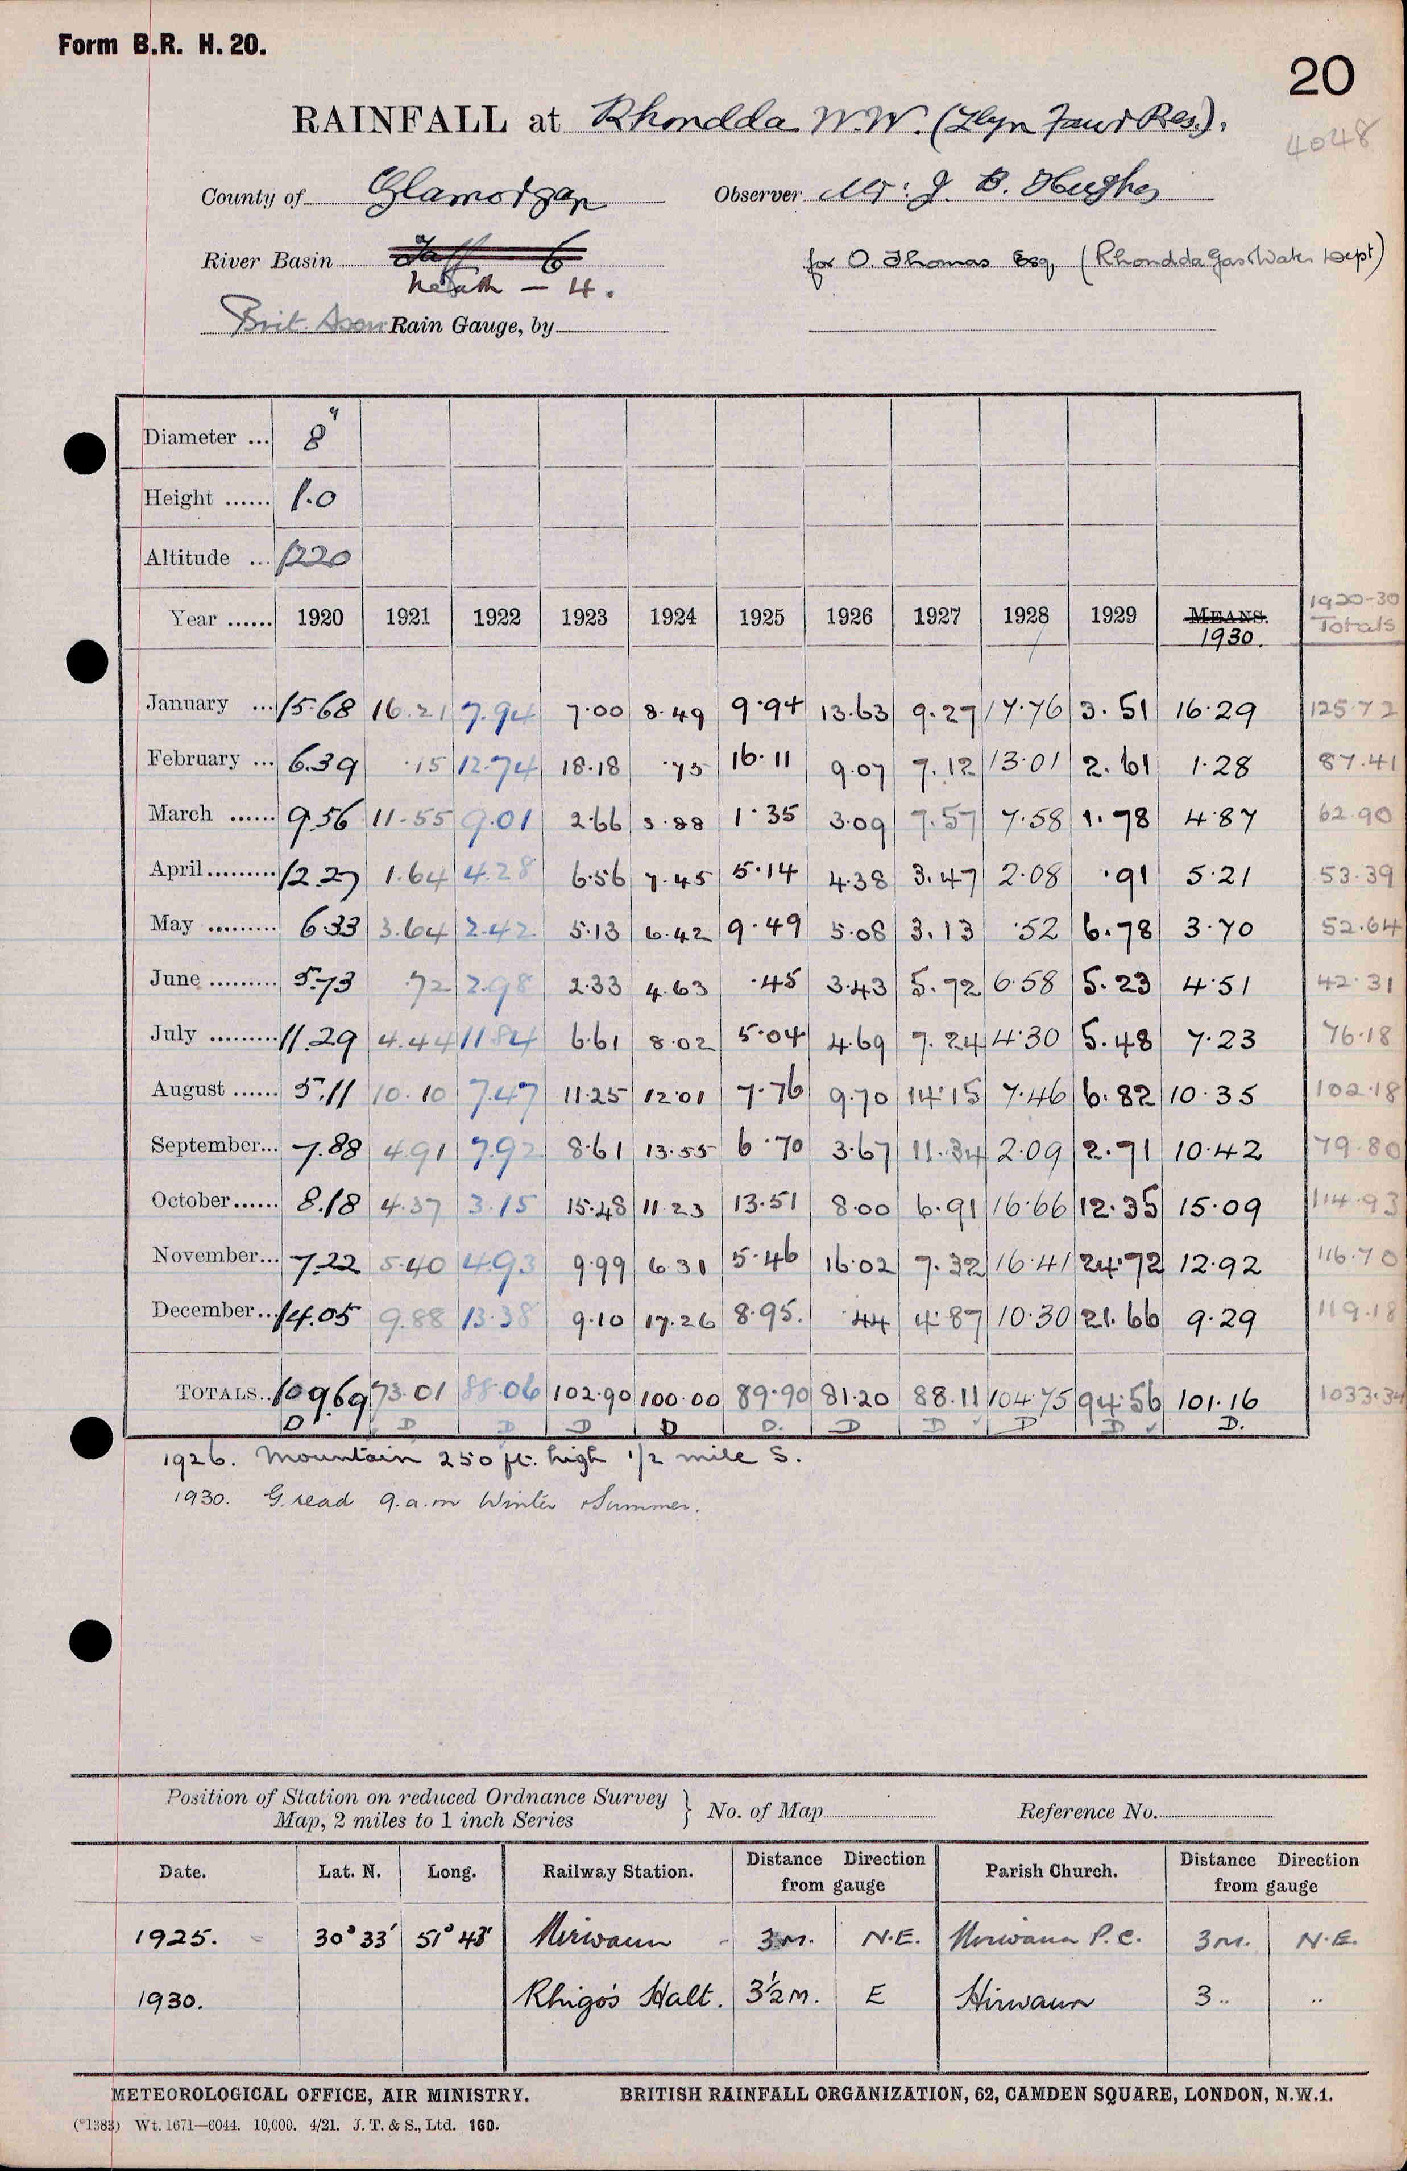 Form B.R. H. 20.
20
RAINFALL at Rhondda W.W. (Llyn Fawr Res.).
4048
County of Glamorgan Observer Mr. J. B. Hughes
River Basin Taff 6 for O. Thomas Esq, (Rhondda Gas & Water Dept)
Neath — 4.
Brit. Assn Rain Gauge, by
Diameter ... 8"
Height ...... 1.0
Altitude ... 1220
Year ...... 1920 1921 1922 1923 1924 1925 1926 1927 1928 1929 MEANS. 1930. 1920-30 Totals
January ... 15.68 16.21 7.94 7.00 8.49 9.94 13.63 9.27 17.76 3.51 16.29 125.72
February ... 6.39 .15 12.74 18.18 .75 16.11 9.07 7.12 13.01 2.61 1.28 87.41
March ...... 9.56 11.55 9.01 2.66 3.88 1.35 3.09 7.57 7.58 1.78 4.87 62.90
April ......... 12.27 1.64 4.28 6.56 7.45 5.14 4.38 3.47 2.08 .91 5.21 53.39
May ......... 6.33 3.64 2.42 5.13 6.42 9.49 5.08 3.13 .52 6.78 3.70 52.64
June ......... 5.73 .72 2.98 2.33 4.63 .45 3.43 5.72 6.58 5.23 4.51 42.31
July ......... 11.29 4.44 11.84 6.61 8.02 5.04 4.69 7.24 4.30 5.48 7.23 76.18
August ...... 5.11 10.10 7.47 11.25 12.01 7.76 9.70 14.15 7.46 6.82 10.35 102.18
September... 7.88 4.91 7.92 8.61 13.55 6.70 3.67 11.34 2.09 2.71 10.42 79.80
October...... 8.18 4.37 3.15 15.48 11.23 13.51 8.00 6.91 16.66 12.35 15.09 114.93
November... 7.22 5.40 4.93 9.99 6.31 5.46 16.02 7.32 16.41 24.72 12.92 116.70
December... 14.05 9.88 13.38 9.10 17.26 8.95. .44 4.87 10.30 21.66 9.29 119.18
TOTALS... 109.69 73.01 88.06 102.90 100.00 89.90 81.20 88.11 104.75 94.56 101.16 1033.34
D D D D D D. D D ✓ D D ✓ D.
1926. Mountain 250 ft. high 1/2 mile S.
1930. G. read 9.a.m Winter & Summer.
Position of Station on reduced Ordnance Survey
Map, 2 miles to 1 inch Series } No. of Map Reference No.
Date. Lat. N. Long. Railway Station. Distance Direction from gauge Parish Church. Distance Direction from gauge
1925. 30° 33' 51° 43' Hirwaun 3 M. N.E. Hirwaun P.C. 3 M. N.E.
1930. Rhigos Halt. 3½ M. E Hirwaun 3 .. ..
METEOROLOGICAL OFFICE, AIR MINISTRY. BRITISH RAINFALL ORGANIZATION, 62, CAMDEN SQUARE, LONDON, N.W.1.
(*1383) Wt. 1671—6044. 10,000. 4/21. J. T. & S., Ltd. 160.